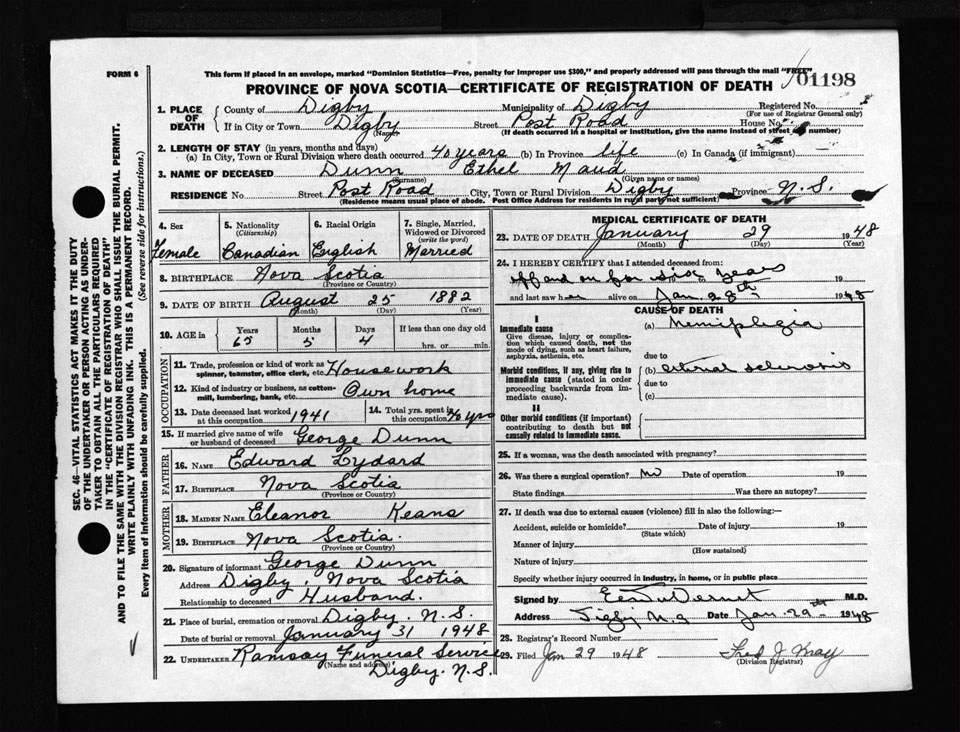 FORM 6
This form if placed in an envelope, marked "Dominion Statistics—Free, penalty for improper use $300," and properly addressed will pass through the mail "FREE"
PROVINCE OF NOVA SCOTIA—CERTIFICATE OF REGISTRATION OF DEATH
01198
1. PLACE OF DEATH
County of Digby Municipality of Digby Registered No.
(For use of Registrar General only)
If in City or Town Digby Street Post Road House No.
(Name) (If death occurred in a hospital or institution, give the name instead of street and number)
2. LENGTH OF STAY (in years, months and days)
(a) In City, Town or Rural Division where death occurred 40 years (b) In Province life (c) In Canada (if immigrant)
3. NAME OF DECEASED Dunn Ethel Maud
(Surname) (Given name or names)
RESIDENCE No. Street Post Road City, Town or Rural Division Digby Province N.S.
(Residence means usual place of abode. Post Office Address for residents in rural parts not sufficient)
4. Sex
Female
5. Nationality (Citizenship)
Canadian
6. Racial Origin
English
7. Single, Married, Widowed or Divorced (write the word)
Married
8. BIRTHPLACE Nova Scotia
(Province or Country)
9. DATE OF BIRTH August 25 1882
(Month) (Day) (Year)
10. AGE in Years Months Days If less than one day old
65 5 4 hrs. or min.
OCCUPATION
11. Trade, profession or kind of work as spinner, teamster, office clerk, etc. Housework
12. Kind of industry or business, as cotton-mill, lumbering, bank, etc. Own home
13. Date deceased last worked at this occupation 1941
14. Total yrs. spent in this occupation 40 yrs
15. If married give name of wife or husband of deceased George Dunn
FATHER
16. NAME Edward Lydard
17. BIRTHPLACE Nova Scotia
(Province or Country)
MOTHER
18. MAIDEN NAME Eleanor Keans
19. BIRTHPLACE Nova Scotia.
(Province or Country)
20. Signature of informant George Dunn
Address Digby, Nova Scotia
Relationship to deceased Husband.
21. Place of burial, cremation or removal Digby. N.S.
Date of burial or removal January 31 1948
22. UNDERTAKER Ramsay Funeral Service
(Name and address) Digby. N.S.
MEDICAL CERTIFICATE OF DEATH
23. DATE OF DEATH January 29 1948
(Month) (Day) (Year)
24. I HEREBY CERTIFY that I attended deceased from:
off and on for six years 19
and last saw her alive on Jan. 28th 1948
CAUSE OF DEATH
I
Immediate cause
Give disease, injury or complication which caused death, not the mode of dying, such as heart failure, asphyxia, asthenia, etc.
(a) Hemiplegia
due to
Morbid conditions, if any, giving rise to immediate cause (stated in order proceeding backwards from immediate cause).
(b) sclerosis
due to
(c)
II
Other morbid conditions (if important) contributing to death but not causally related to immediate cause.
25. If a woman, was the death associated with pregnancy?
26. Was there a surgical operation? No Date of operation 19
State findings Was there an autopsy?
27. If death was due to external causes (violence) fill in also the following:—
Accident, suicide or homicide? Date of injury 19
(State which)
Manner of injury
(How sustained)
Nature of injury
Specify whether injury occurred in industry, in home, or in public place
Signed by M.D.
Address Digby N.S Date Jan. 29th 1948
28. Registrar's Record Number
29. Filed Jan 29 1948 Fred J May
(Division Registrar)
SEC. 46—VITAL STATISTICS ACT MAKES IT THE DUTY
OF THE UNDERTAKER OR PERSON ACTING AS UNDER-
TAKER TO OBTAIN ALL THE PARTICULARS REQUIRED
IN THE "CERTIFICATE OF REGISTRATION OF DEATH"
AND TO FILE THE SAME WITH THE DIVISION REGISTRAR WHO SHALL ISSUE THE BURIAL PERMIT.
WRITE PLAINLY WITH UNFADING INK. THIS IS A PERMANENT RECORD.
Every item of information should be carefully supplied. (See reverse side for instructions.)